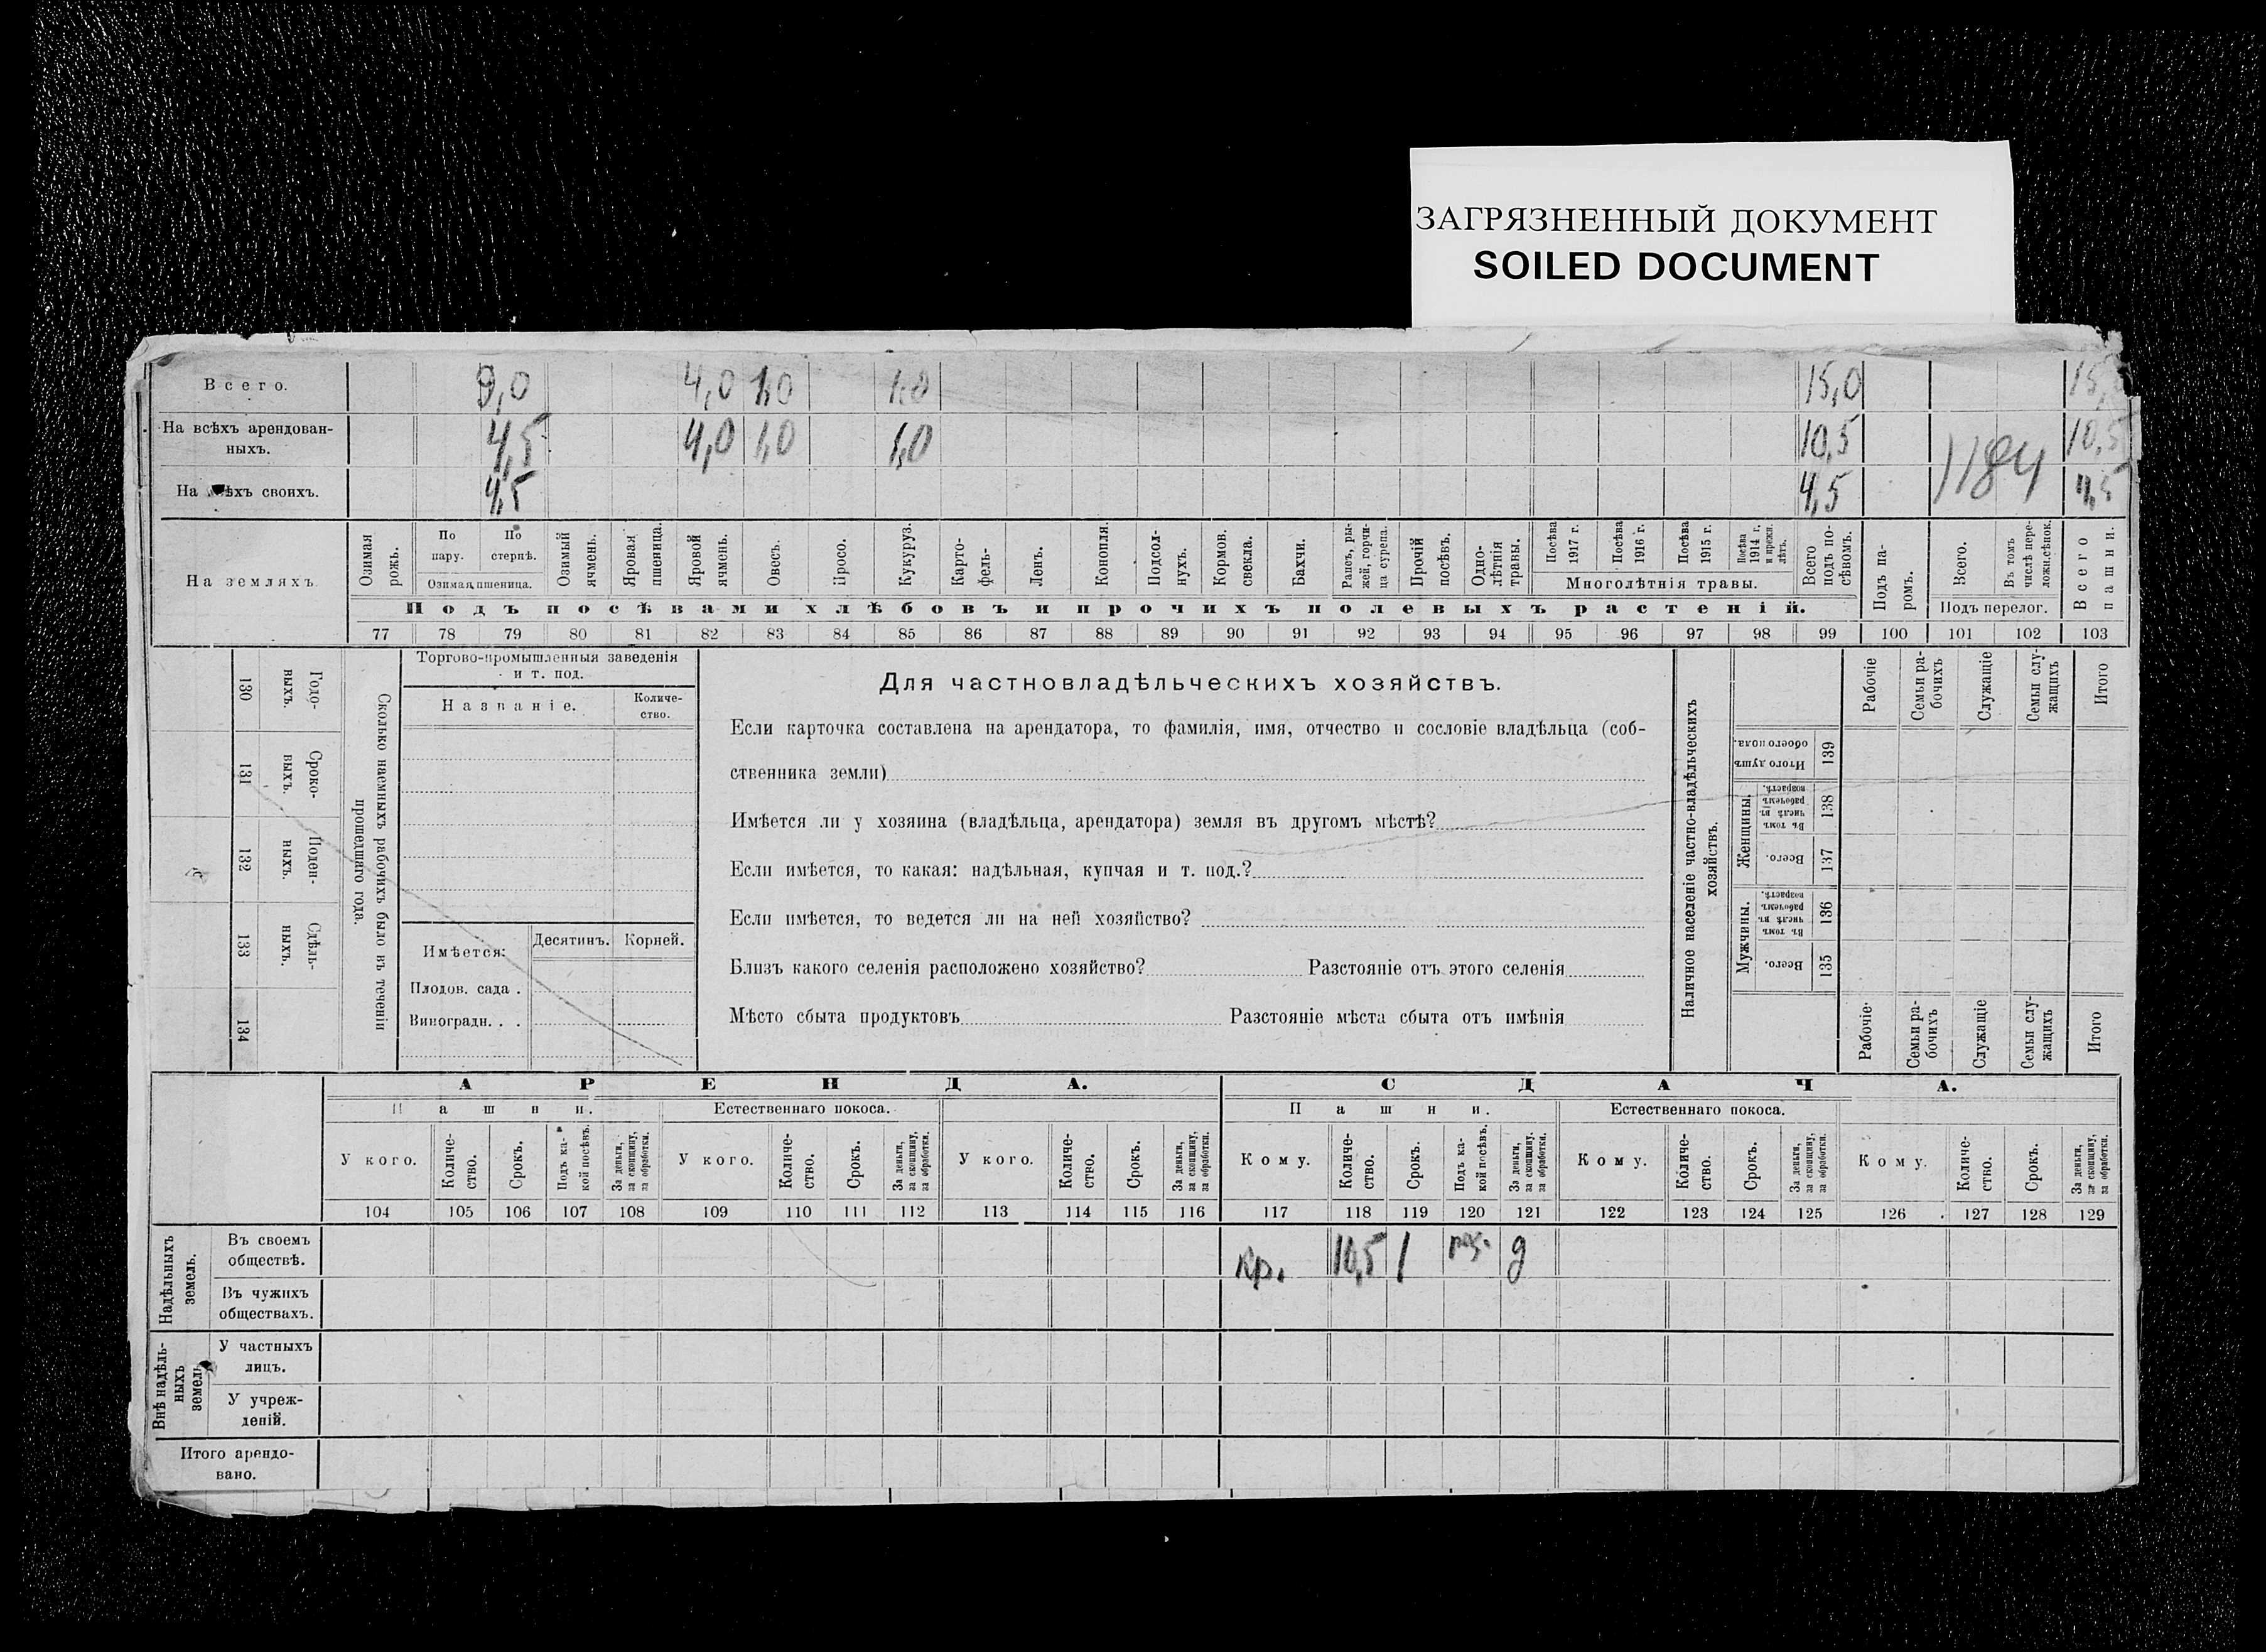 ЗАГРЯЗНЕННЫЙ ДОКУМЕНТ
SOILED DOCUMENT
Всего. 9,0 4,0 1,0 1,0 15,0 15,0
На всѣхъ арендован-
ныхъ. 4,5 4,0 1,0 1,0 10,5 10,5
На всѣхъ своихъ. 4,5 4,5 1184 4,5
На земляхъ
Озимая рожь.
По пару.
По стернѣ.
Озимая пшеница.
Озимый ячмень.
Яровая пшеница.
Яровой ячмень.
Овесъ.
Просо.
Кукуруз.
Карто-фель-
Ленъ.
Конопля.
Подсол-нухъ.
Кормов. свекла.
Бахчи.
Рапсъ, ры-жей, горчи-ца сурепа.
Прочій посѣвъ.
Одно-лѣтнія травы.
Посѣва 1917 г.
Посѣва 1916 г.
Посѣва 1915 г.
Посѣва 1914 г. и прежн. лѣтъ.
Многолѣтнія травы.
Всего подъ по-сѣвомъ.
Подъ па-ромъ.
Всего.
Въ томъ числѣ пере-ложи.сѣнок.
Подъ перелог.
Всего пашни.
Подъ посѣвами хлѣбовъ и прочихъ полевыхъ растеній.
77 78 79 80 81 82 83 84 85 86 87 88 89 90 91 92 93 94 95 96 97 98 99 100 101 102 103
130 Годо-ныхъ.
131 Сроко-выхъ.
132 Поден-ныхъ.
133 Сдѣль-ныхъ.
134
Сколько наемныхъ рабочихъ было въ теченіи
прошедшаго года.
Торгово-промышленныя заведенія
и т. под.
Названіе.
Количе-ство.
Имѣется: Десятинъ. Корней.
Плодов. сада .
Виноградн. . .
Для частновладѣльческихъ хозяйствъ.
Если карточка составлена на арендатора, то фамилія, имя, отчество и сословіе владѣльца (соб-
ственника земли)
Имѣется ли у хозяина (владѣльца, арендатора) земля въ другомъ мѣстѣ?
Если имѣется, то какая: надѣльная, купчая и т. под.?
Если имѣется, то ведется ли на ней хозяйство?
Близъ какого селенія расположено хозяйство? Разстояніе отъ этого селенія
Мѣсто сбыта продуктовъ Разстояніе мѣста сбыта отъ имѣнія
Наличное населеніе частно-владѣльческихъ
хозяйствъ.
Рабочіе
Семьи ра-бочихъ
Служащіе
Семьи слу-жащихъ
Итого
Итого душъ обоего пола. 139
Женщины.
Въ томъ числѣ въ рабочемъ возрастѣ. 138
Всего. 137
Мужчины.
Въ томъ числѣ въ рабочемъ возрастѣ. 136
Всего. 135
Рабочіе
Семьи ра-бочихъ
Служащіе
Семьи слу-жащихъ
Итого
АРЕНДА. СДАЧА.
Пашни. Естественнаго покоса. Пашни. Естественнаго покоса.
У кого. Количе-ство. Срокъ. Подъ ка-кой посѣвъ. За деньги, за скопщину, за обработки.
У кого. Количе-ство. Срокъ. За деньги, за скопщину, за обработки.
У кого. Количе-ство. Срокъ. За деньги, за скопщину, за обработки.
Кому. Количе-ство. Срокъ. Подъ ка-кой посѣвъ. За деньги, за скопщину, за обработки.
Кому. Количе-ство. Срокъ. За деньги, за скопщину, за обработки.
Кому. Количе-ство. Срокъ. За деньги, за скопщину, за обработки.
104 105 106 107 108 109 110 111 112 113 114 115 116 117 118 119 120 121 122 123 124 125 126 127 128 129
Надѣльныхъ земель.
Въ своемъ
обществѣ. Кр. 10,5 1 д
Въ чужихъ
обществахъ.
Внѣ надѣль-ныхъ земель
У частныхъ
лицъ.
У учреж-
деній.
Итого арендо-
вано.